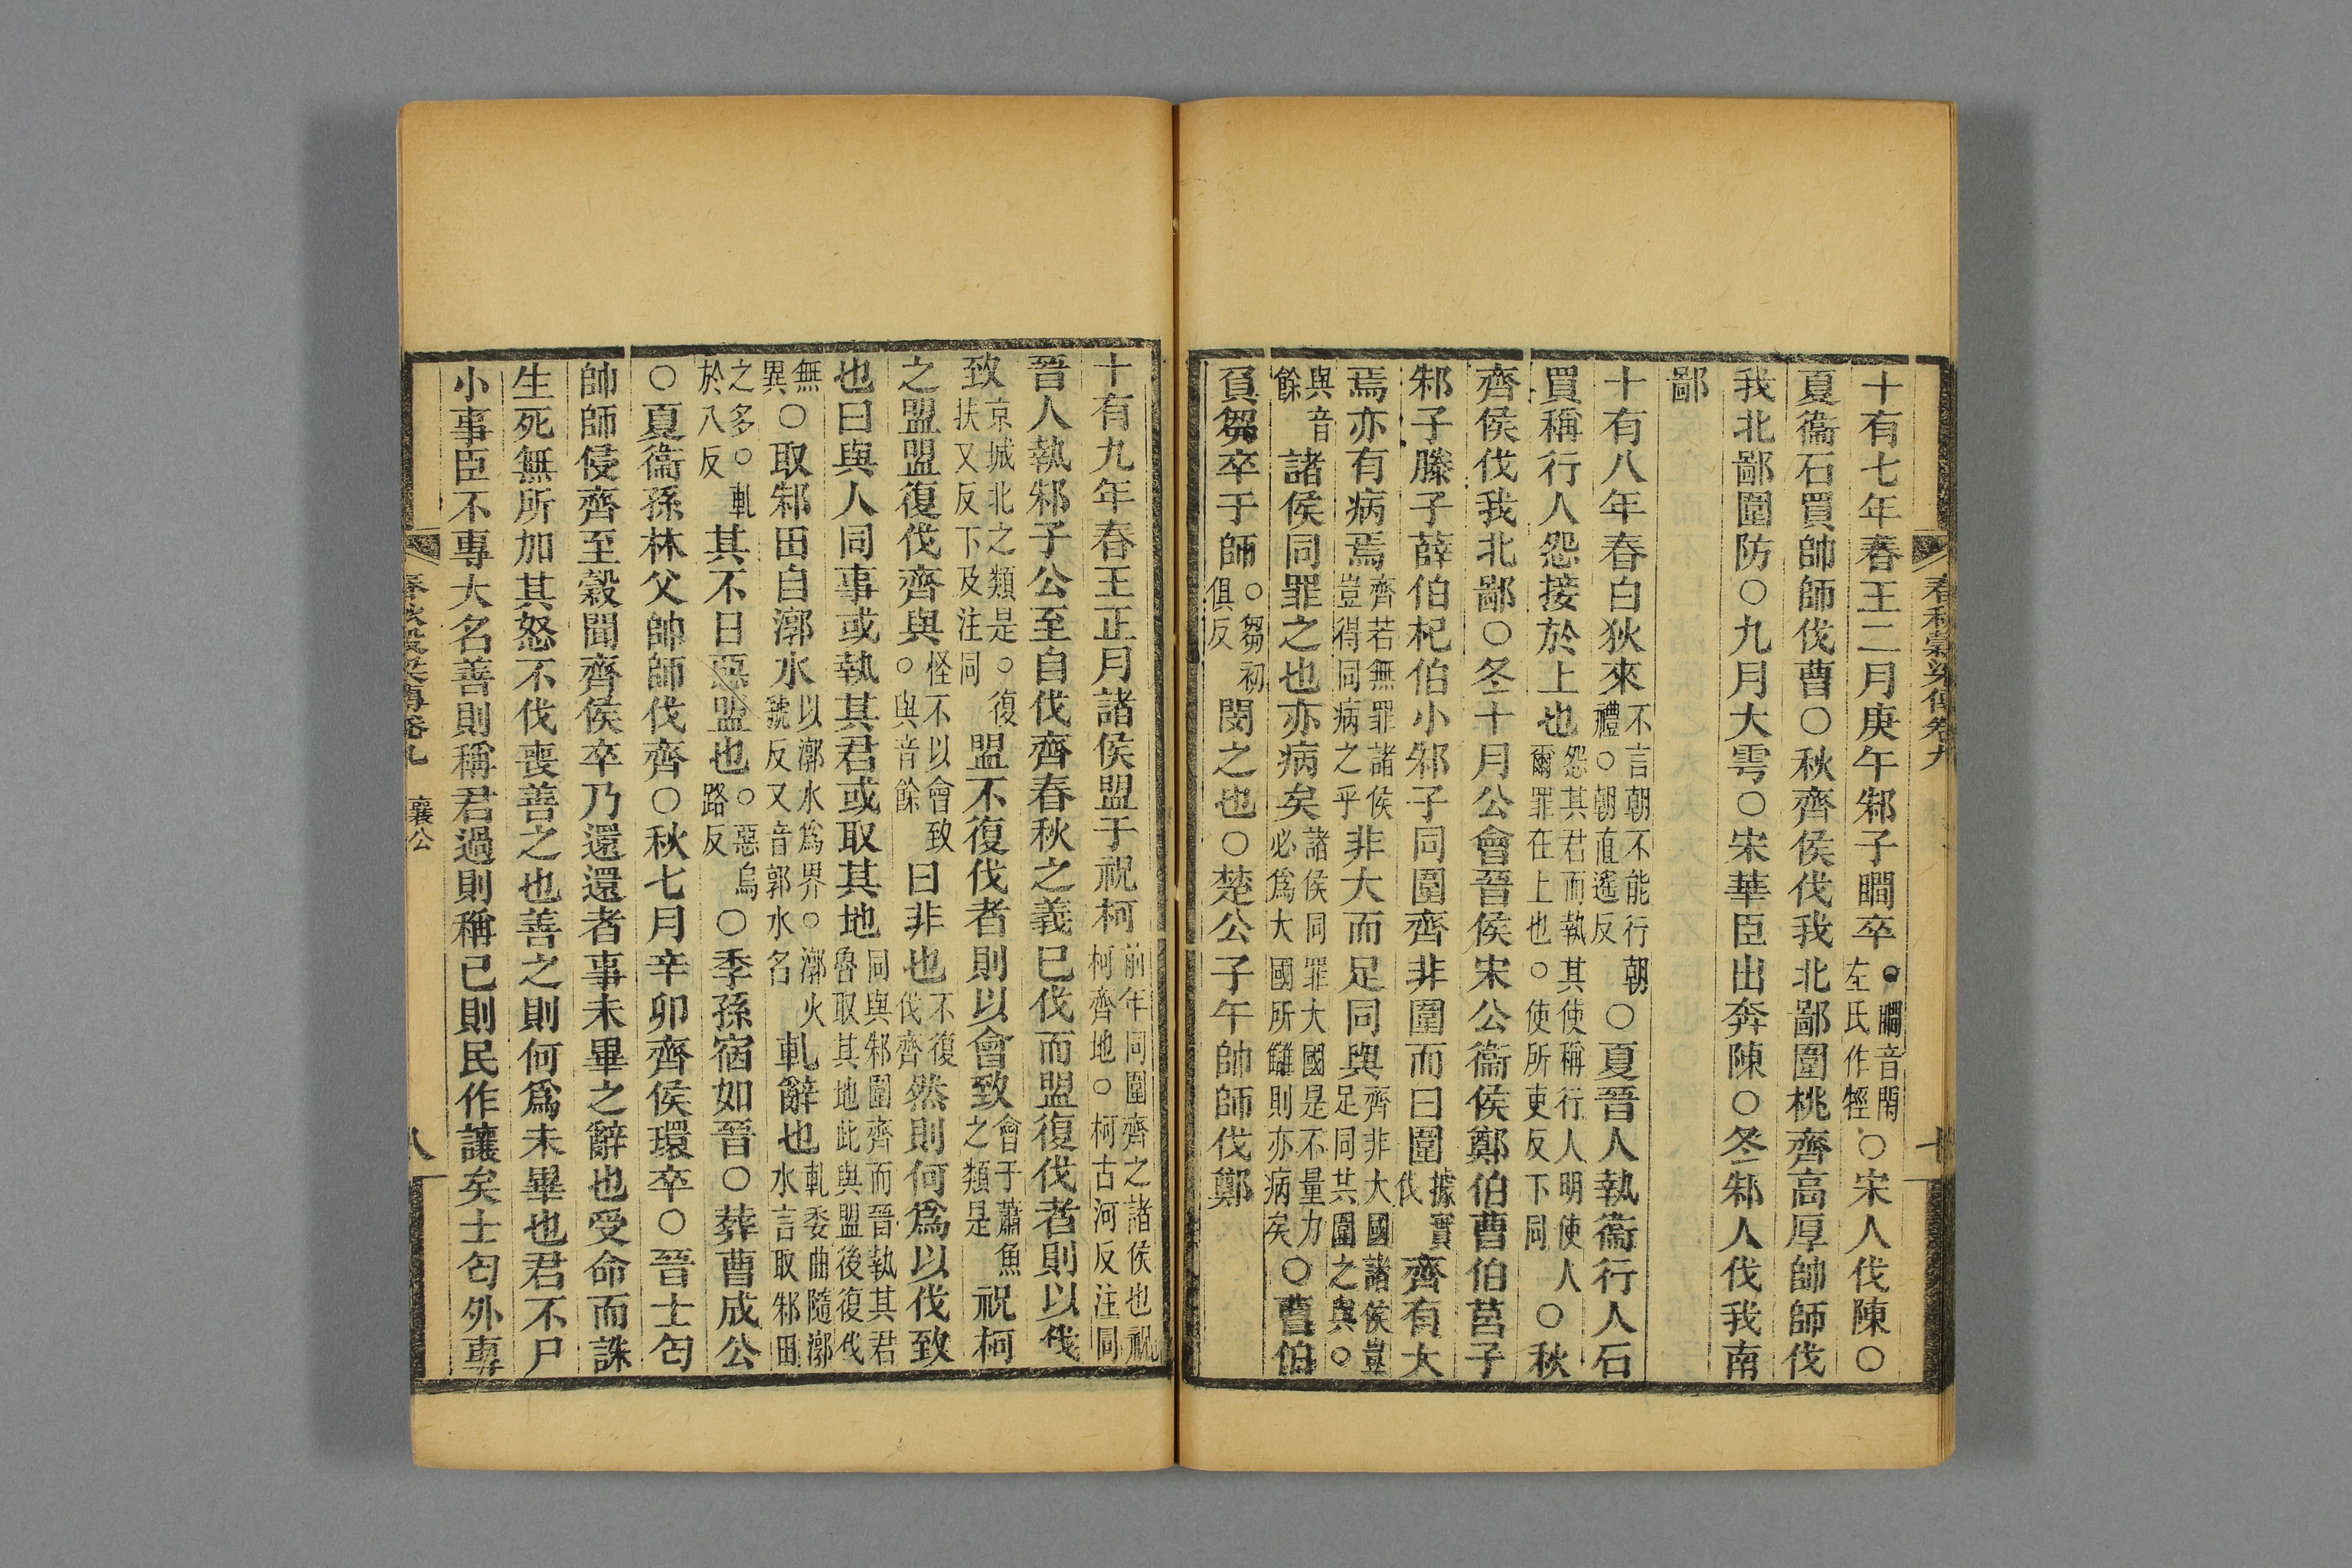 春秋穀梁傳卷九
十有七年春王二月庚午邾子瞷卒○瞷音閑左氏作牼○宋人伐陳○
夏衞石買帥師伐曹○秋齊侯伐我北鄙圍桃齊高厚帥師伐
我北鄙圍防○九月大雩○宋華臣出奔陳○冬邾人伐我南
鄙
十有八年春白狄來不言朝不能行朝禮○朝直遙反○夏晉人執衞行人石
買稱行人怨接於上也怨其君而執其使稱行人明使人爾罪在上也○使所吏反下同○秋
齊侯伐我北鄙○冬十月公會晉侯宋公衞侯鄭伯曹伯莒子
邾子滕子薛伯杞伯小邾子同圍齊非圍而曰圍據實伐齊有大
焉亦有病焉齊若無罪諸侯豈得同病之乎非大而足同與齊非大國諸侯豈足同共圍之與○
與音餘諸侯同罪之也亦病矣諸侯同罪大國是不量力必爲大國所讎則亦病矣○曹伯
負芻卒于師○芻初俱反閔之也○楚公子午帥師伐鄭
十有九年春王正月諸侯盟于祝柯前年同圍齊之諸侯也祝柯齊地○柯古河反注同
晉人執邾子公至自伐齊春秋之義已伐而盟復伐者則以伐
致京城北之類是○復扶又反下及注同盟不復伐者則以會致會于蕭魚之類是祝柯
之盟盟復伐齊與怪不以會致○與音餘曰非也不復伐齊然則何爲以伐致
也曰與人同事或執其君或取其地同與邾圍齊而晉執其君魯取其地此與盟後復伐
無異○取邾田自漷水以漷水爲界○漷火虢反又音郭水名軋辭也軋委曲隨漷水言取邾田
之多○軋於八反其不日惡盟也○惡烏路反○季孫宿如晉○葬曹成公
○夏衞孫林父帥師伐齊○秋七月辛卯齊侯環卒○晉士匄
帥師侵齊至穀聞齊侯卒乃還還者事未畢之辭也受命而誅
生死無所加其怒不伐喪善之也善之則何爲未畢也君不尸
小事臣不專大名善則稱君過則稱己則民作讓矣士匄外專
春秋穀梁傳卷九 襄公 八